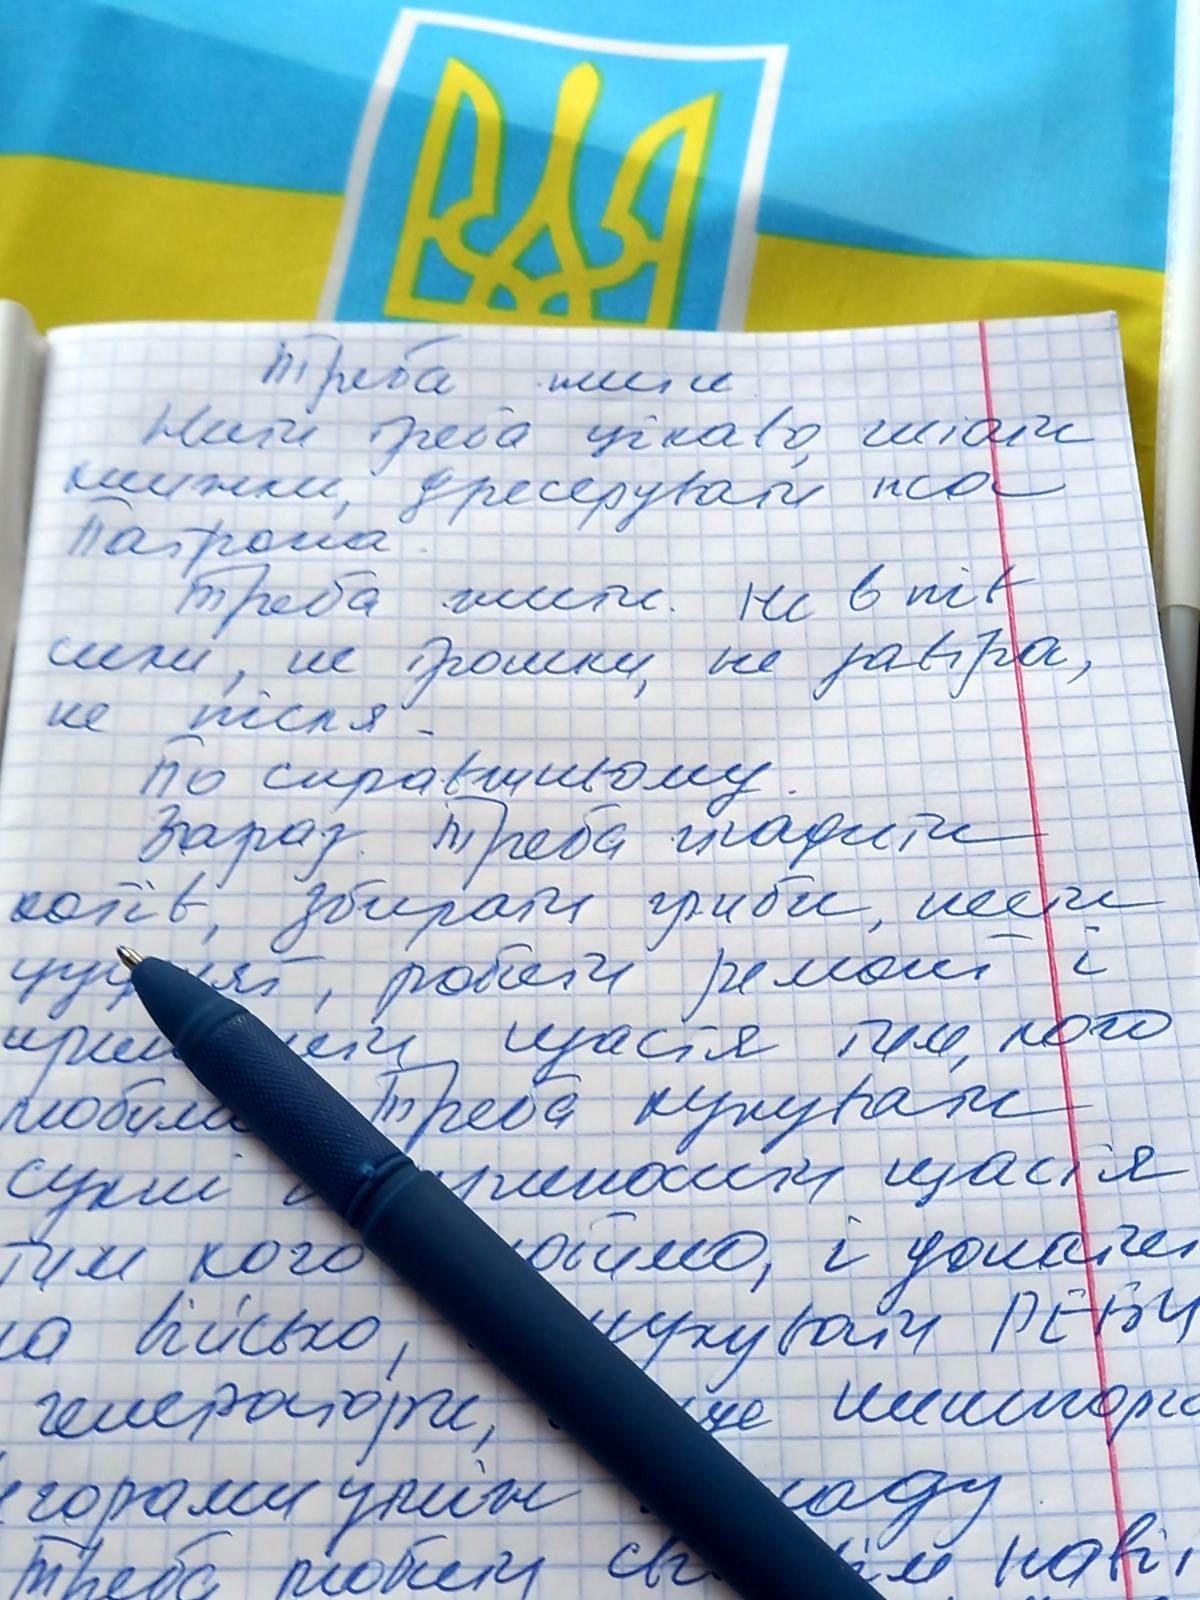 Треба жити
Жити треба цікаво, читати
книжки, дресерувати пса
Патрона.
Треба жити. Не в пів
сили, не трошки, не завтра,
не після.
По справжньому.
Зараз. Треба гладити
котів, збирати гриби, нести
робити ремонт і
щастя тим, кого
Треба купувати
сукні приносити щастя
тим кого і донатити
на військо, купувати РЕБи
генератори, ще
Треба любити